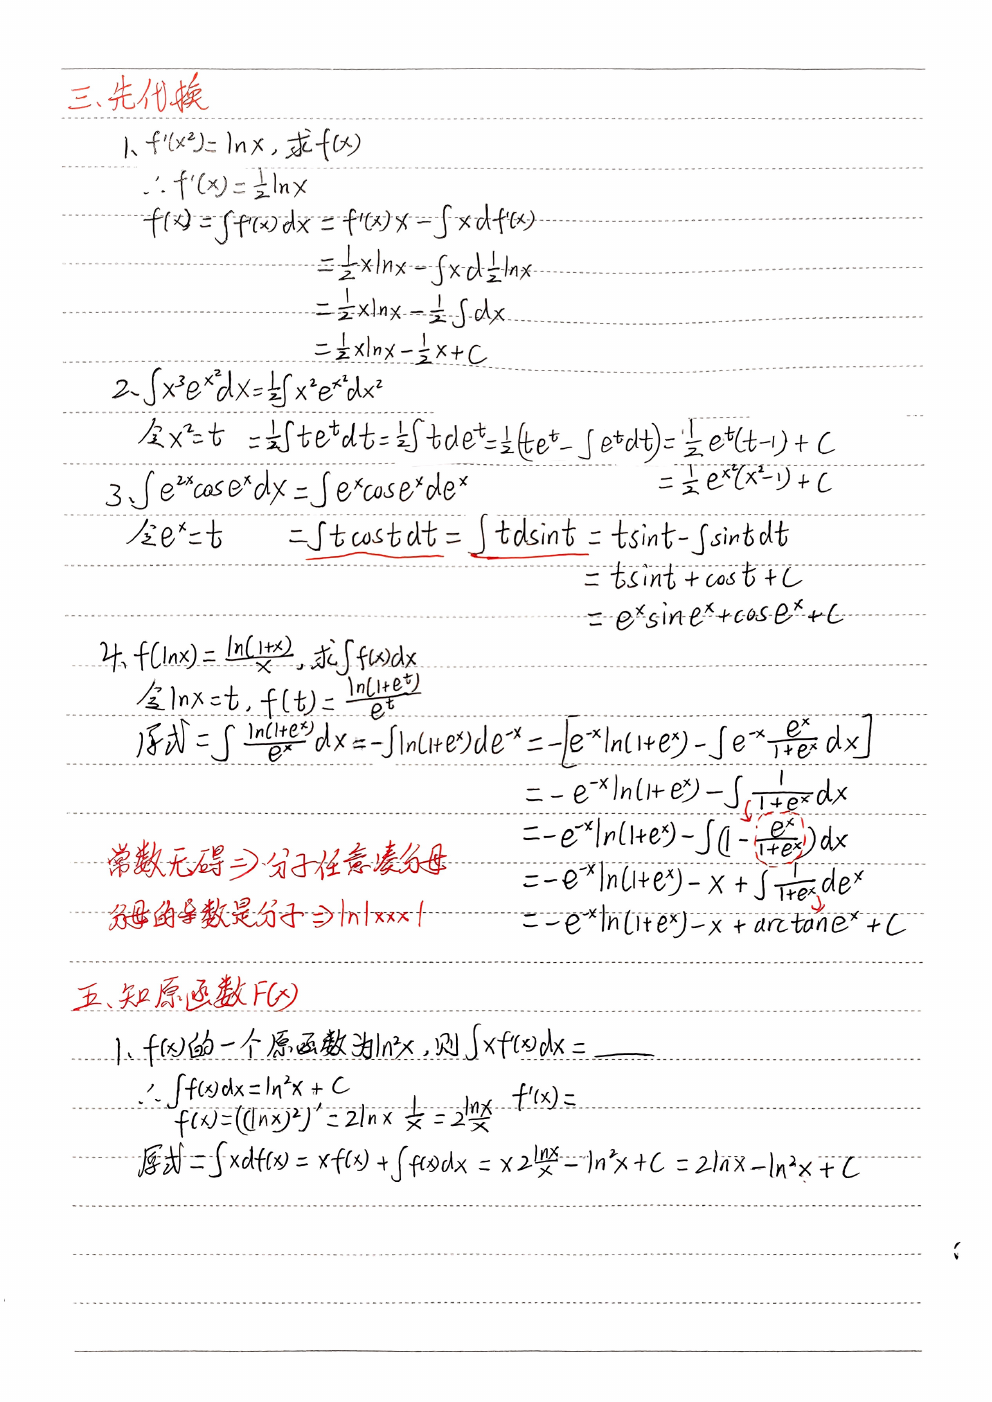 三、先代换
1、f'(x²)=lnx，求f(x)
∴f'(x)=½lnx
f(x)=∫f'(x)dx=f'(x)x-∫xdf'(x)
=½xlnx-∫xd½lnx
=½xlnx-½∫dx
=½xlnx-½x+C
2、∫x³e^{x²}dx=½∫x²e^{x²}dx²
令x²=t =½∫te^tdt=½∫tde^t=½(te^t-∫e^tdt)=½e^t(t-1)+C
=½e^{x²}(x²-1)+C
3、∫e^{2x}cose^xdx=∫e^xcose^xde^x
令e^x=t =∫tcostdt=∫tdsint=tsint-∫sintdt
=tsint+cost+C
=e^xsine^x+cose^x+C
4、f(lnx)=ln(1+x)/x，求∫f(x)dx
令lnx=t，f(t)=ln(1+e^t)/e^t
原式=∫ln(1+e^x)/e^x dx=-∫ln(1+e^x)de^{-x}=-[e^{-x}ln(1+e^x)-∫e^{-x} e^x/(1+e^x) dx]
=-e^{-x}ln(1+e^x)-∫1/(1+e^x) dx
=-e^{-x}ln(1+e^x)-∫(1-e^x/(1+e^x))dx
=-e^{-x}ln(1+e^x)-x+∫1/(1+e^x) de^x
=-e^{-x}ln(1+e^x)-x+arctane^x+C
常数无碍⇒分子任意凑分母
分母的导数是分子⇒ln|xxx|
五、知原函数F(x)
1、f(x)的一个原函数为ln²x，则∫xf'(x)dx=____
∴∫f(x)dx=ln²x+C
f(x)=((lnx)²)'=2lnx 1/x=2lnx/x f'(x)=
原式=∫xdf(x)=xf(x)+∫f(x)dx=x2lnx/x-ln²x+C=2lnx-ln²x+C